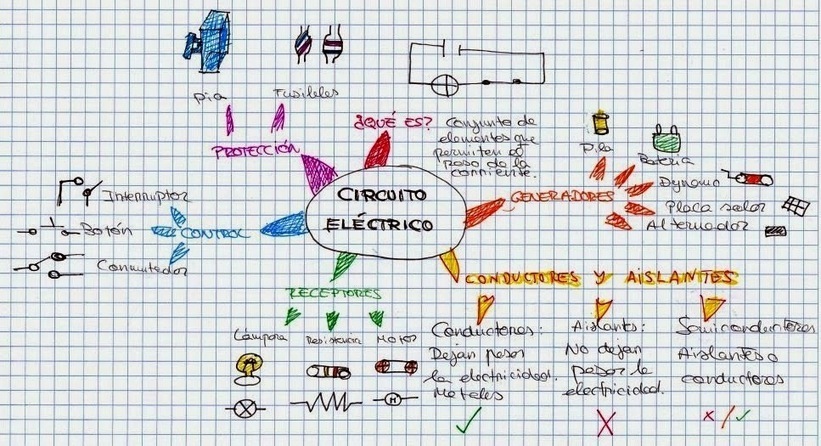 pia
Fusibles
PROTECCIÓN
¿QUÉ ES?
Conjunto de
elementos que
permiten el
paso de la
corriente.
Pila
Batería
Dynamo
Placa solar
Alternador
GENERADORES
CIRCUITO
ELÉCTRICO
Interruptor
Botón
Conmutador
CONTROL
RECEPTORES
Lámpara
Resistencia
Motor
M
CONDUCTORES Y AISLANTES
Conductores:
Dejan pasar
la electricidad.
Metales
Aislants:
No dejan
pasar la
electricidad.
Semiconductores
Aislantes o
conductores